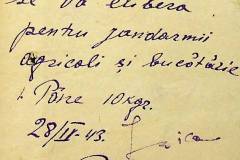 se va elibera
pentru jandarmii
agricoli și bucătărie
1 Pâine 10 kgr.
28/II-43.